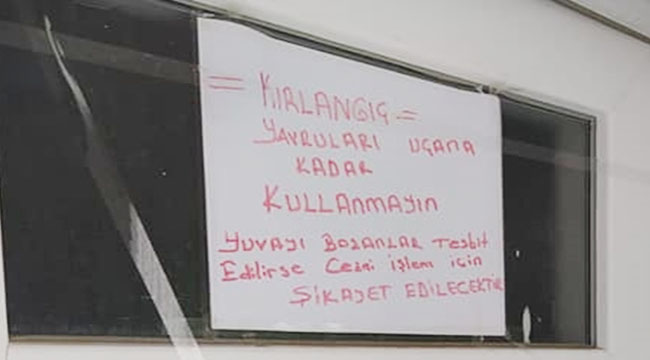 = KIRLANGIÇ =
YAVRULARI UÇANA
KADAR
KULLANMAYIN
YUVAYI BOZANLAR Tesbit
Edilirse Cezai işlem için
ŞİKAYET EDİLECEKTİR